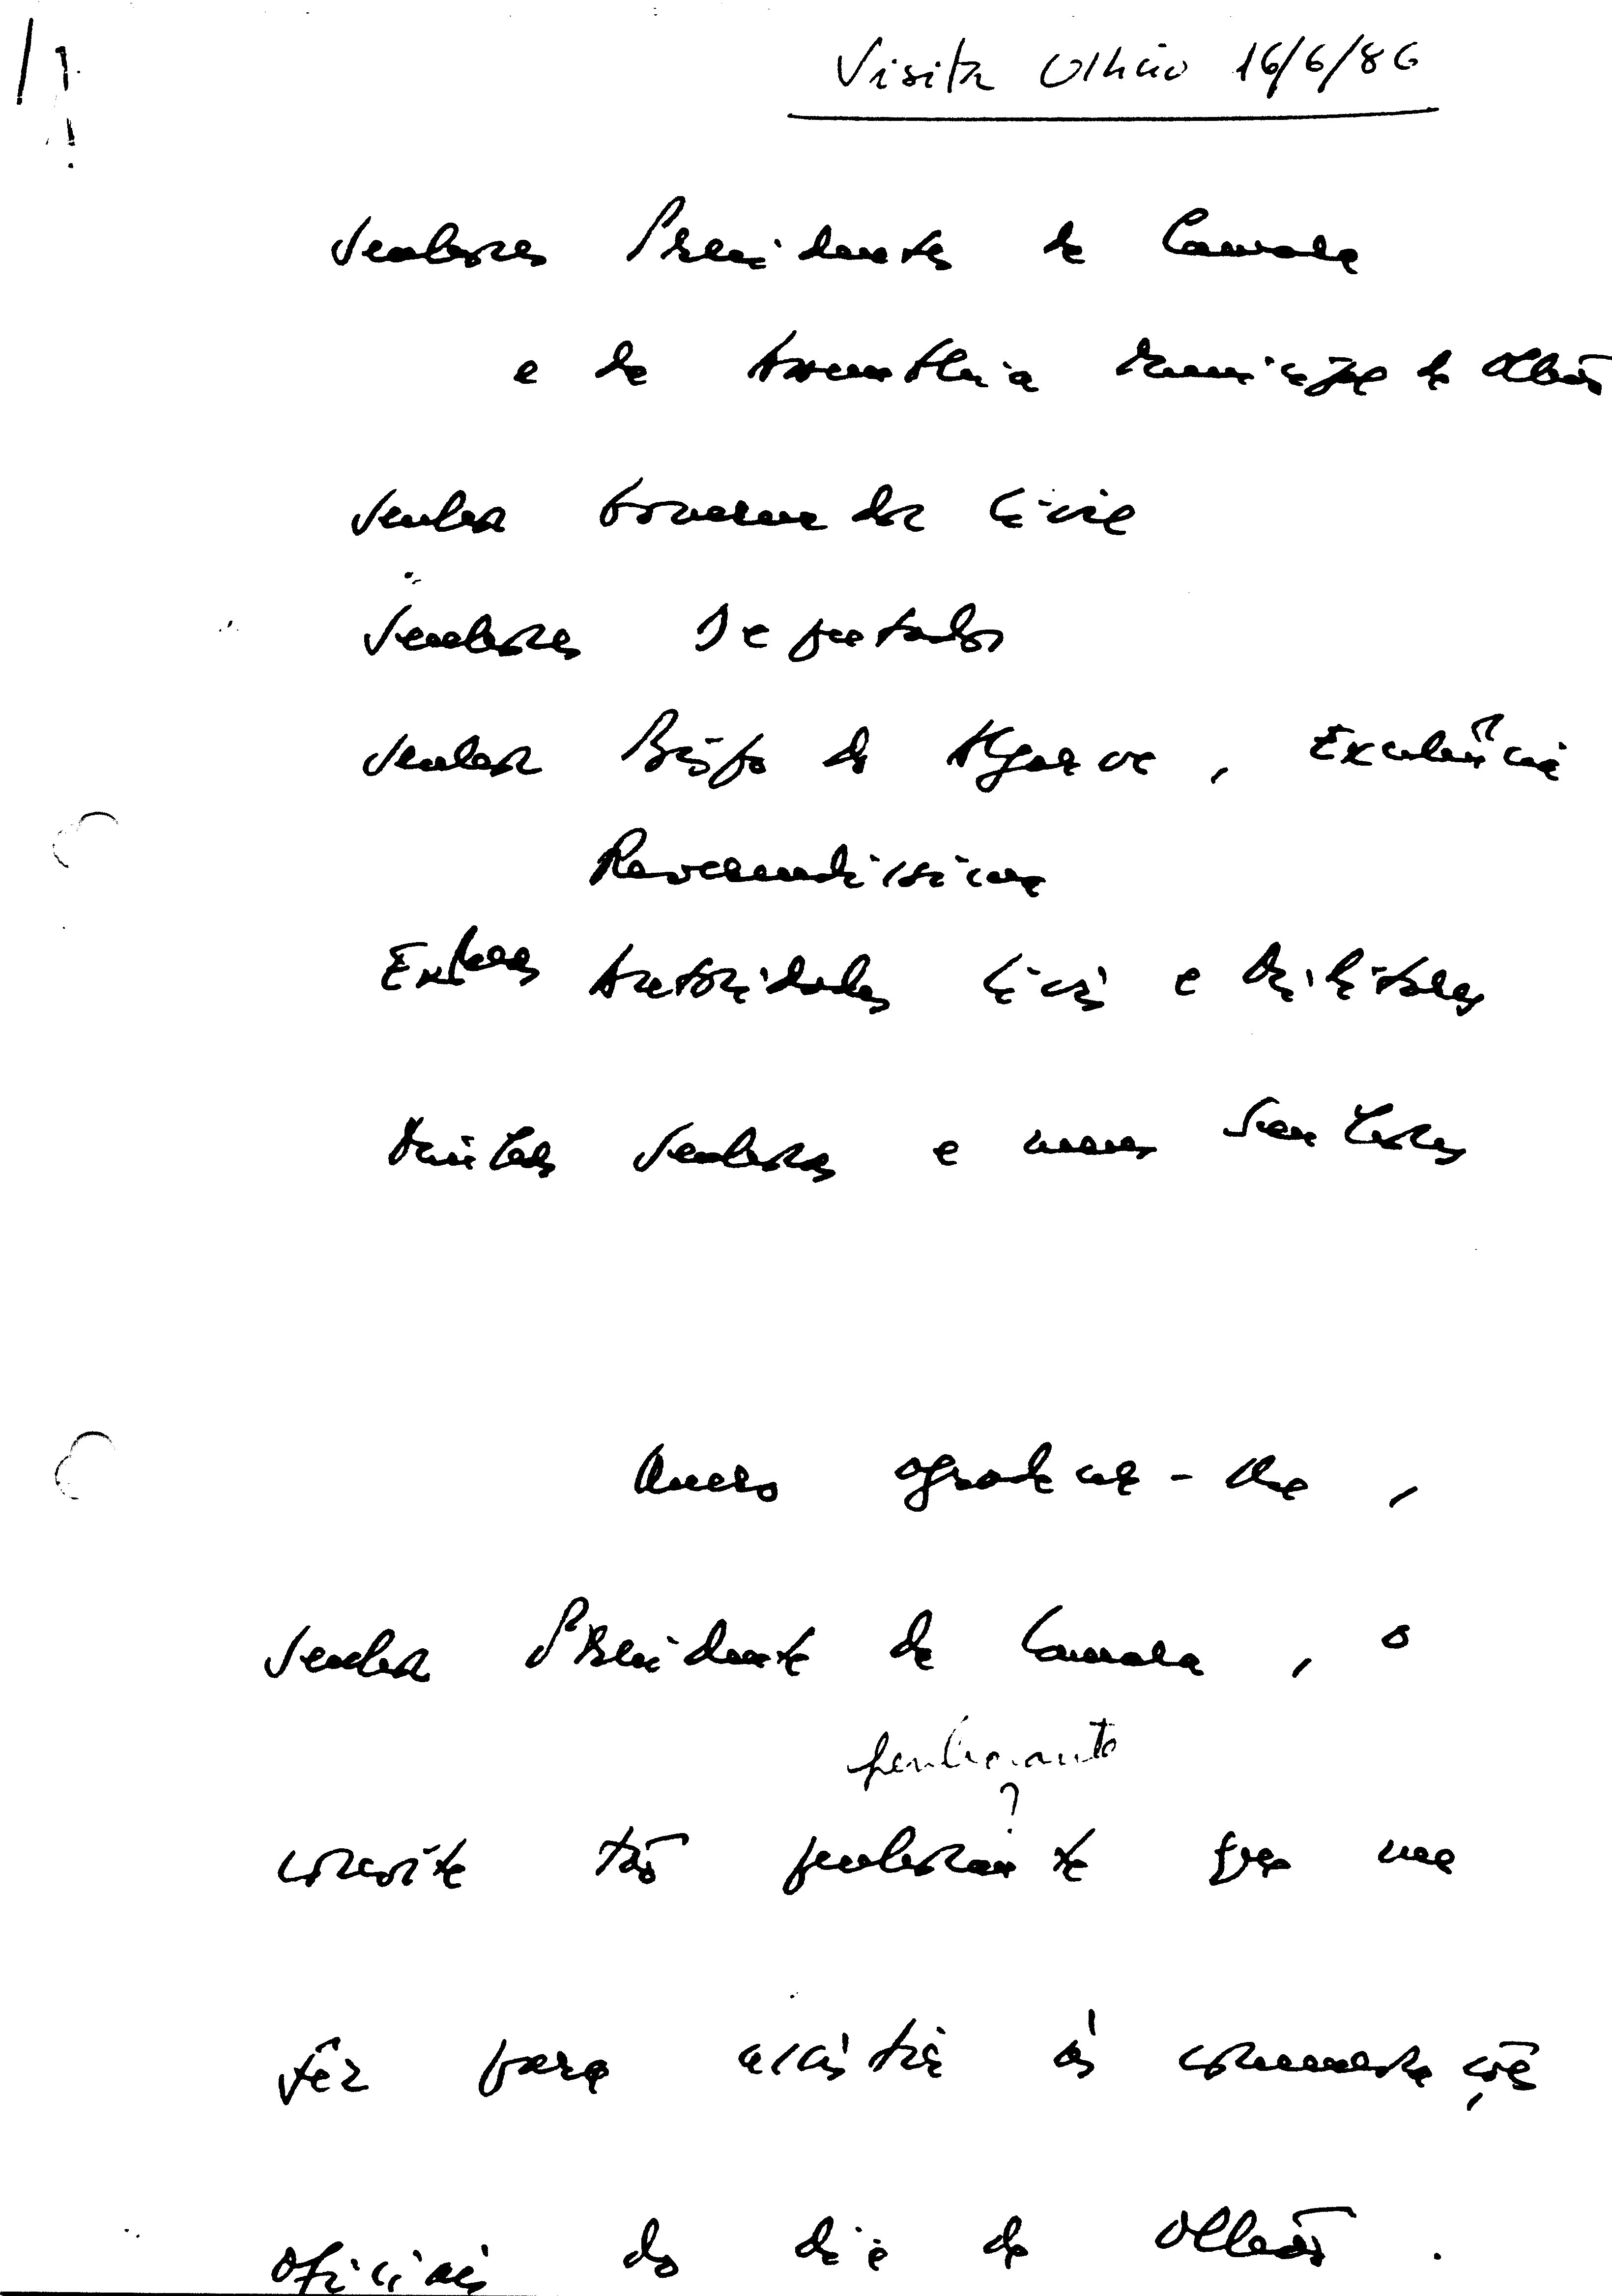 1
Visita Olhão 16/6/86
Senhores Presidentes da Camara
e da Assembleia Municipal de Olhão
Senhor Governador Civil
Senhores Deputados
Senhor Bispo do Algarve, Excelência
Reverendíssima
Exmas Autoridades Civis e Militares
Minhas Senhoras e meus Senhores
Quero agradecer-lhe,
Senhor Presidente da Camara, o
penhorante
?
convite tão penhorante que me
fêz para assistir às comemorações
oficiais do dia de Olhão.